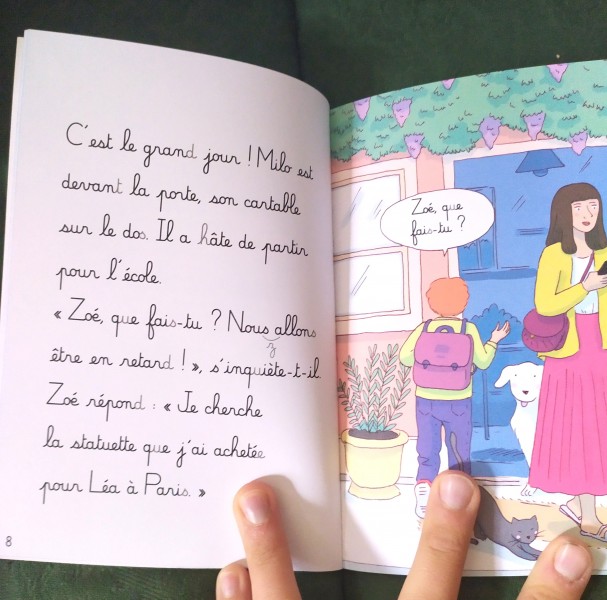 C'est le grand jour ! Milo est
devant la porte, son cartable
sur le dos. Il a hâte de partir
pour l'école.
« Zoé, que fais-tu ? Nous allons
z
être en retard ! », s'inquiète-t-il.
Zoé répond : « Je cherche
la statuette que j'ai achetée
pour Léa à Paris. »
8
Zoé, que
fais-tu ?